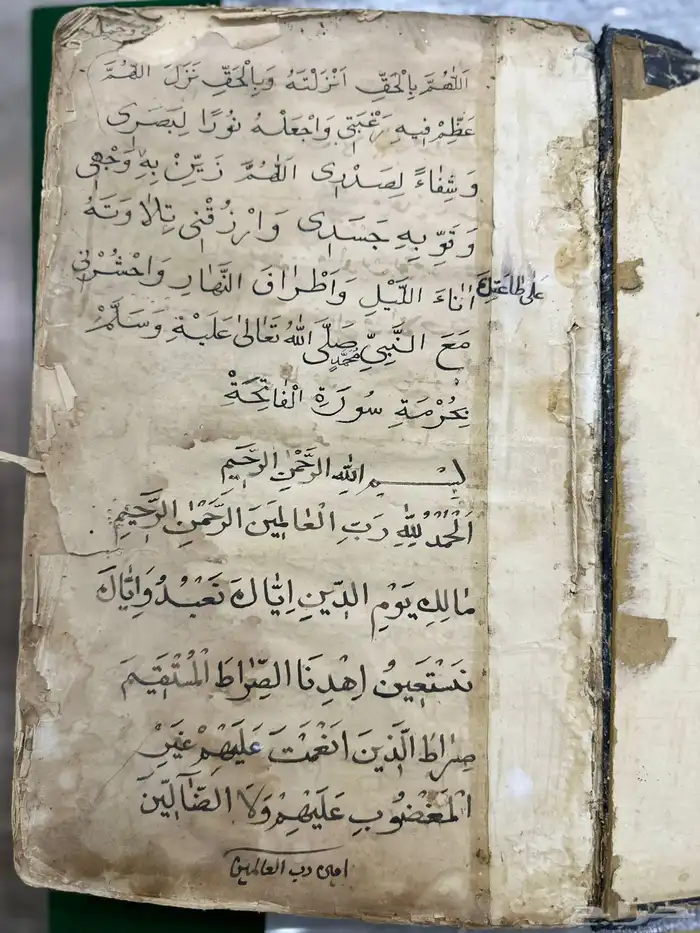 اَللّٰهُمَّ بِالْحَقِّ اَنْزَلْتَهُ وَبِالْحَقِّ نَزَلَ اَللّٰهُمَّ
عَظِّمْ فِيهِ رَغْبَتِى وَاجْعَلْهُ نُورًا لِبَصَرِى
وَشِفَاءً لِصَدْرِى اَللّٰهُمَّ زَيِّنْ بِهِ وَجْهِى
وَقَوِّ بِهِ جَسَدِى وَارْزُقْنِى تِلَاوَتَهُ
عَلٰى طَاعَتِكَ اٰنَاءَ اللَّيْلِ وَاَطْرَافَ النَّهَارِ وَاحْشُرْنِى
مَعَ النَّبِىِّ مُحَمَّدٍ صَلَّى اللّٰهُ تَعَالٰى عَلَيْهِ وَسَلَّمْ
بِحُرْمَةِ سُورَةِ الْفَاتِحَةْ
بِسْمِ اللّٰهِ الرَّحْمٰنِ الرَّحِيمِ
اَلْحَمْدُ لِلّٰهِ رَبِّ الْعَالَمِينَ الرَّحْمٰنِ الرَّحِيمِ
مَالِكِ يَوْمِ الدِّينِ اِيَّاكَ نَعْبُدُ وَاِيَّاكَ
نَسْتَعِينُ اِهْدِنَا الصِّرَاطَ الْمُسْتَقِيمَ
صِرَاطَ الَّذِينَ اَنْعَمْتَ عَلَيْهِمْ غَيْرِ
الْمَغْضُوبِ عَلَيْهِمْ وَلَا الضَّآلِّينَ
امين رب العالمين
حراج